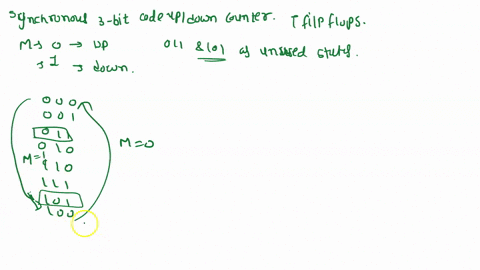 synchronous 3-bit code up/down counter. T flip flops.
M → 0 → up 011 & 101 as unused states.
→ 1 → down.
0 0 0
0 0 1
0 1 1
0 1 0
M=1 1 1 0
1 1 1
1 0 1
1 0 0
M=0